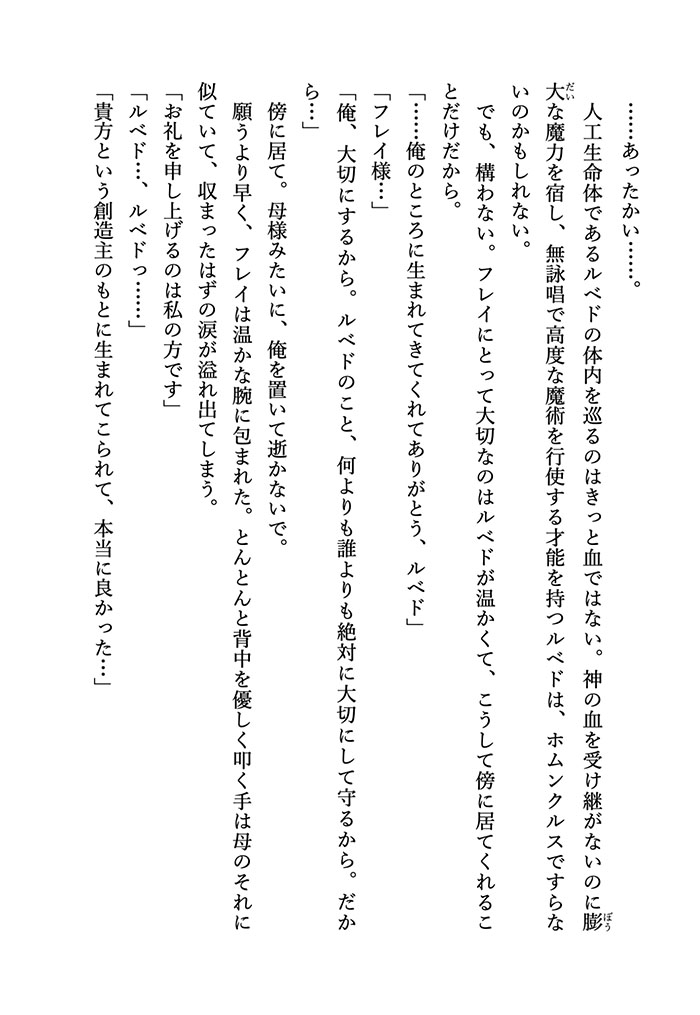 ……あったかい……。
人工生命体であるルベドの体内を巡るのはきっと血ではない。神の血を受け継がないのに膨
大な魔力を宿し、無詠唱で高度な魔術を行使する才能を持つルベドは、ホムンクルスですらな
いのかもしれない。
でも、構わない。フレイにとって大切なのはルベドが温かくて、こうして傍に居てくれるこ
とだけだから。
「……俺のところに生まれてきてくれてありがとう、ルベド」
「フレイ様…」
「俺、大切にするから。ルベドのこと、何よりも誰よりも絶対に大切にして守るから。だか
ら…」
傍に居て。母様みたいに、俺を置いて逝かないで。
願うより早く、フレイは温かな腕に包まれた。とんとんと背中を優しく叩く手は母のそれに
似ていて、収まったはずの涙が溢れ出てしまう。
「お礼を申し上げるのは私の方です」
「ルベド…、ルベドっ……」
「貴方という創造主のもとに生まれてこられて、本当に良かった…」